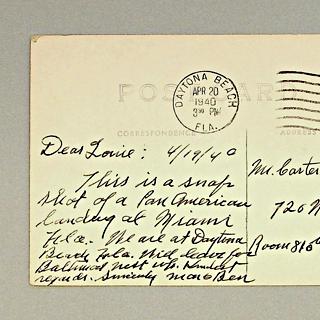 POST CARD
DAYTONA BEACH
APR 20
1940
3 30 PM
FLA.
CORRESPONDENCE
ADDRESS
Dear Louie: 4/19/40
This is a snap
shot of a Pan American
landing at Miami
Fla. We are at Daytona
Beach Fla. Will leave for
Baltimore next wk. Kindest
regards. Sincerely
Mr. Carter
726
Room 816